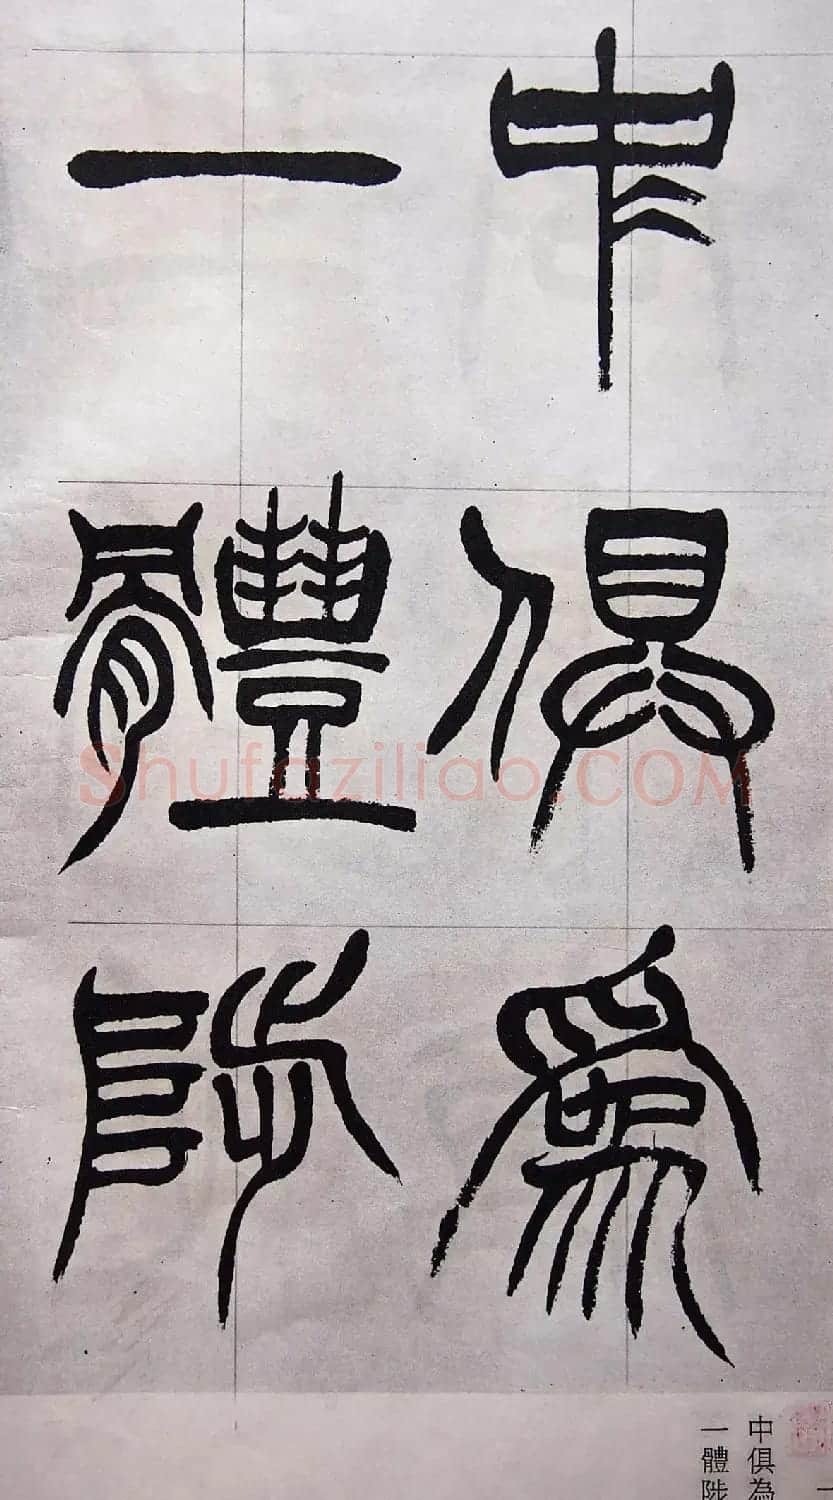 中俱爲
一體陟
Shufaziliao.COM
中俱為
一體陟